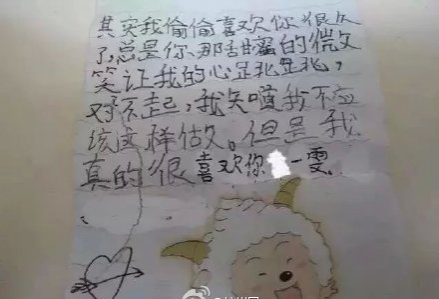 其实我偷偷喜欢你很久
了,总是你、那甜蜜的微
笑让我的心跳跳,
对不起,我知道我不应
该这样做。但是我
真的很喜欢你 一雯